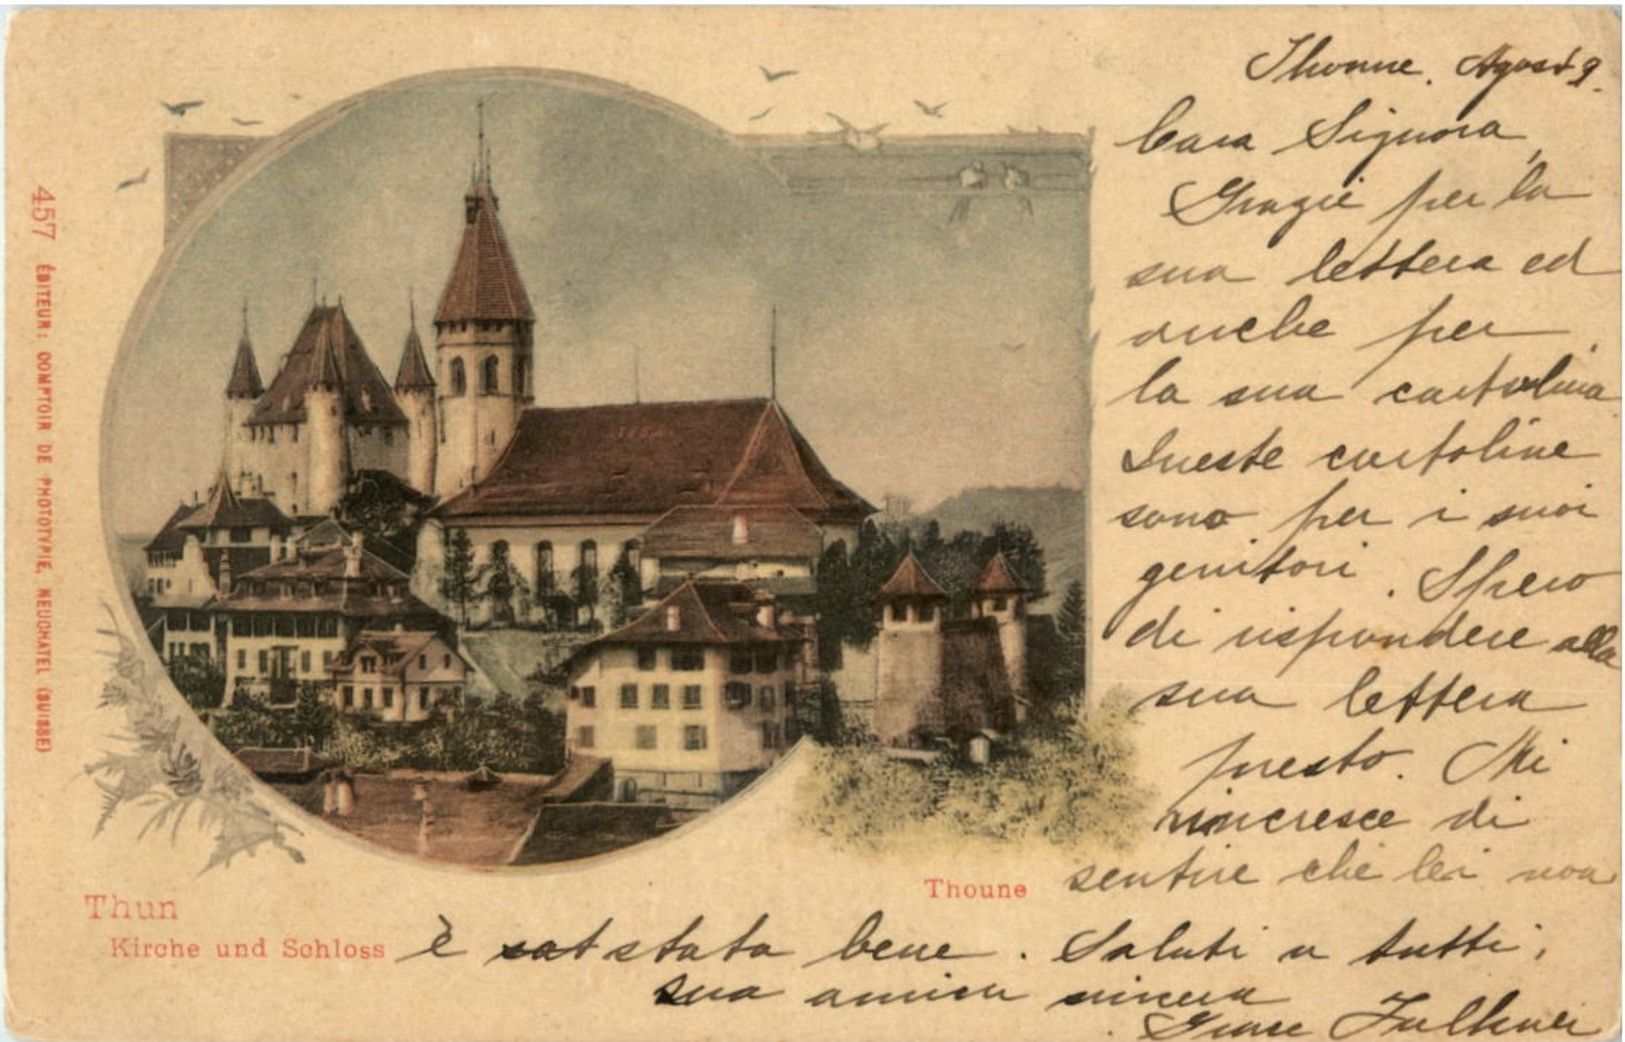 457 ÉDITEUR: COMPTOIR DE PHOTOTYPIE, NEUCHATEL (SUISSE)
Thun
Kirche und Schloss
Thoune
Thoune. Agost 9.
Cara Signora,
Grazie per la
sua lettera ed
anche per
la sua cartolina.
Queste cartoline
sono per i suoi
genitori. Spero
di rispondere alla
sua lettera
presto. Mi
rincresce di
sentire che lei non
è stata bene. Saluti a tutti,
sua amica sincera
Grace Faulkner